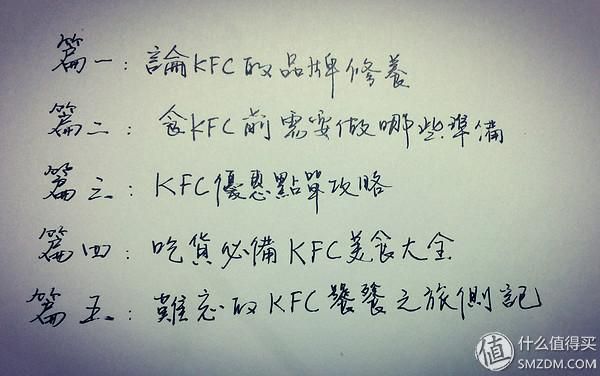 篇一：論KFC的品牌修養
篇二：食KFC前需要做哪些準備
篇三：KFC優惠點單攻略
篇四：吃貨必備KFC美食大全
篇五：難忘的KFC饕餮之旅側記
值 什么值得买
SMZDM.COM